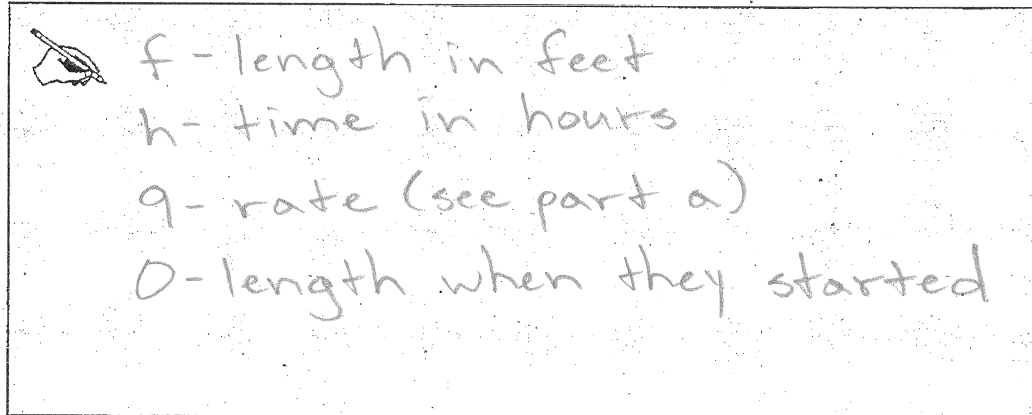 f - length in feet
h - time in hours
9 - rate (see part a)
0 - length when they started